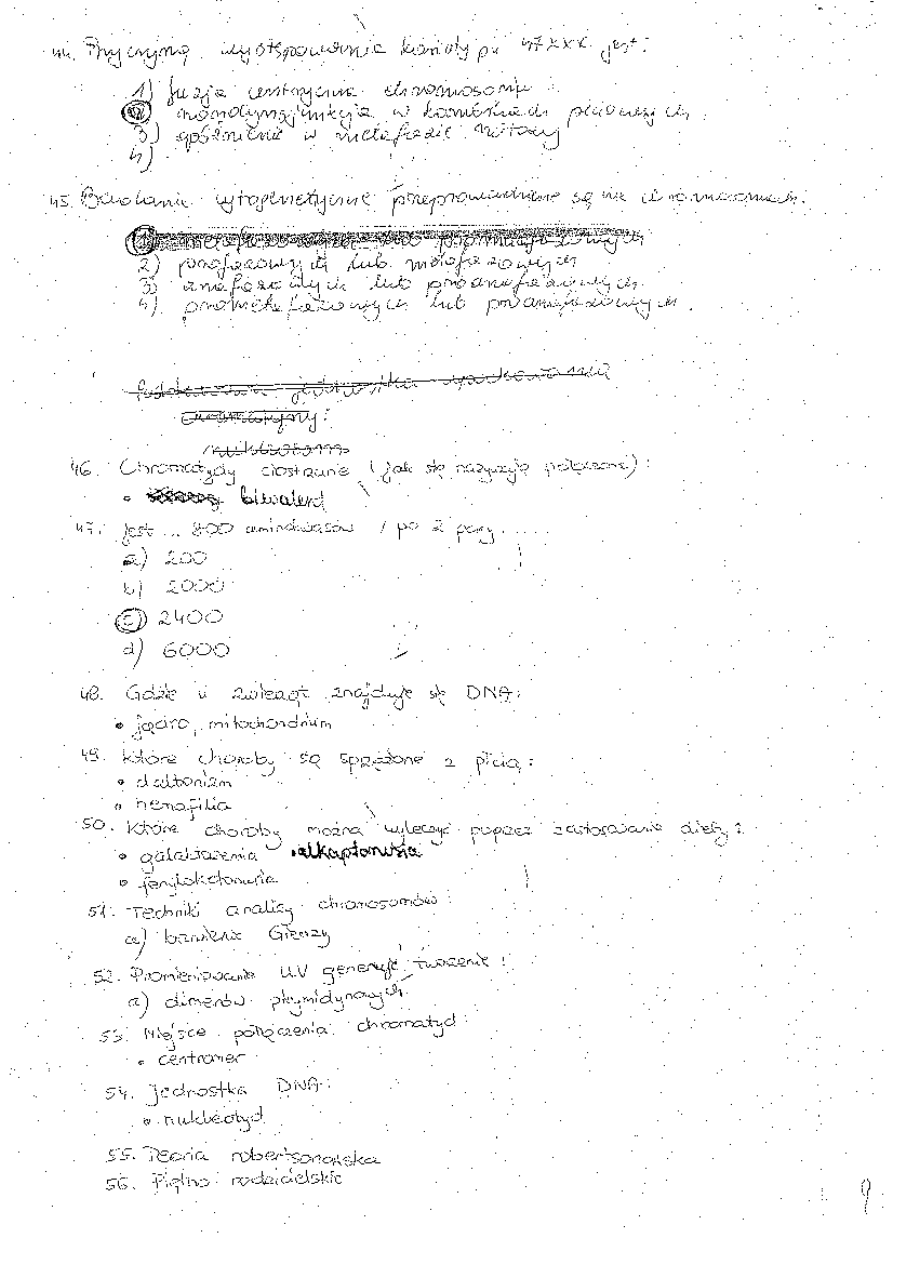 44. Przyczyną występowania kariotypu 47XXX jest:
1) fuzja centryczna chromosomu
2) nondysjunkcja w komórkach płciowych
3) opóźnienie w metafazie mitozy
4)
45. Badania cytogenetyczne przeprowadzane są na chromosomach:
1) metafazowych lub
2) profazowych lub metafazowych
3) anafazowych lub proanafazowych
4) prometafazowych lub proanafazowych
Podstawowa jednostka upakowania
chromatyny:
nukleosom
46. Chromatydy ciostrzane (jak się nazywają połączone):
• biwalent
47. Jest ... 800 aminokwasów / po 2 pary.....
a) 200
b) 2000
c) 2400
d) 6000
48. Gdzie u zwierząt znajduje się DNA:
• jądro, mitochondrium
49. Które choroby są sprzężone z płcią:
• daltonizm
• hemofilia
50. Które choroby można wyleczyć poprzez zastosowanie diety:
• galaktozemia • alkaptonuria
• fenyloketonuria
51. Techniki analizy chromosomów:
a) barwienie Giemzy
52. Promieniowanie UV generuje tworzenie:
a) dimerów pirymidynowych
53. Miejsce połączenia chromatyd:
• centromer
54. Jednostka DNA:
• nukleotyd
55. Teoria robertsonowska
56. Piętno rodzicielskie
9